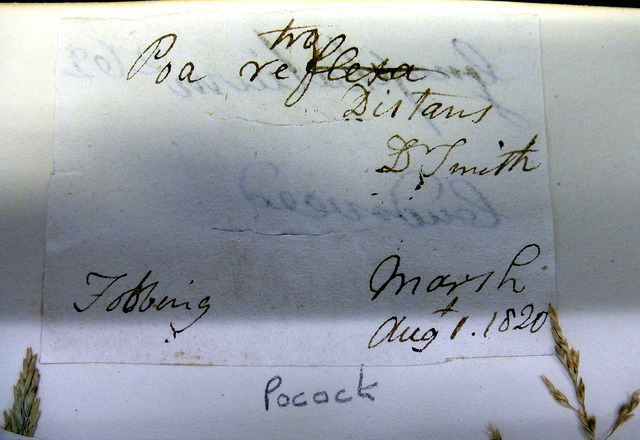 tro
Poa reflexa
Distans
Dr Smith
Fobbing Marsh
Augt 1. 1820
Pocock